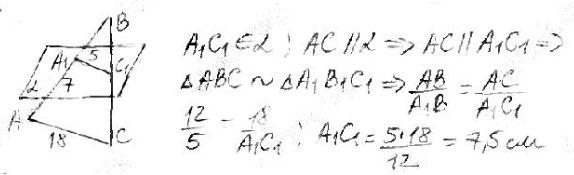 B
A₁ 5 C₁
α 7
A
18 C
A₁C₁ ∈ α ; AC ∥ α ⇒ AC ∥ A₁C₁ ⇒
△ABC ~ △A₁B₁C₁ ⇒ AB/A₁B = AC/A₁C₁
12/5 = 18/A₁C₁ ; A₁C₁ = 5·18/12 = 7,5 см